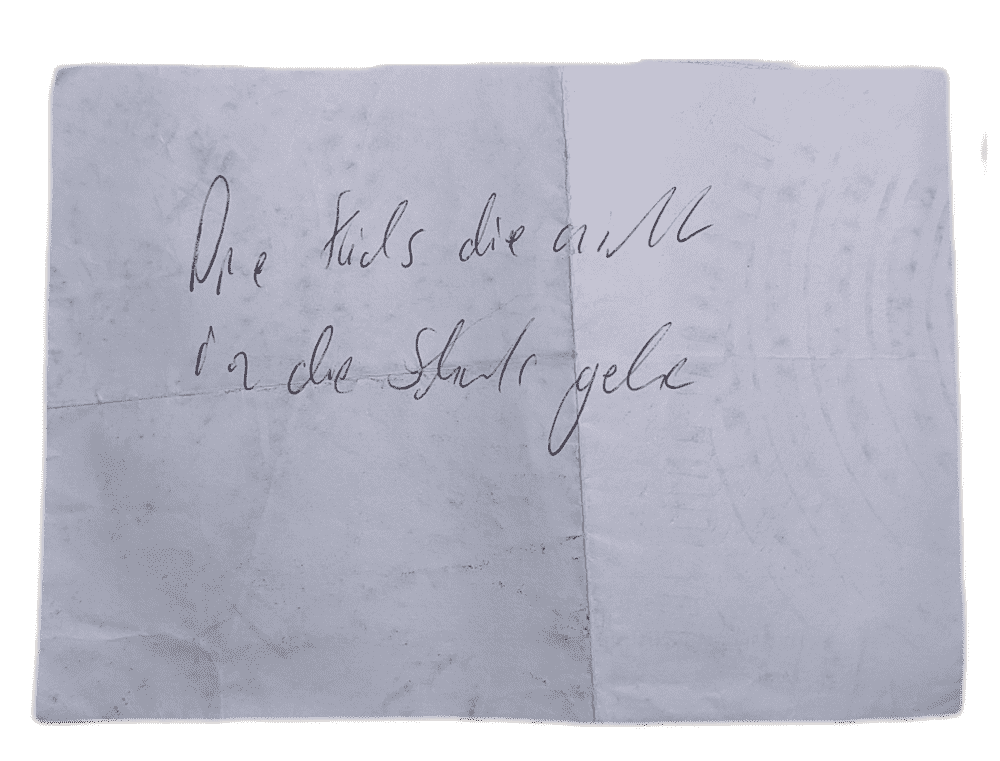 Die Kids die nicht
in die Schule gehe